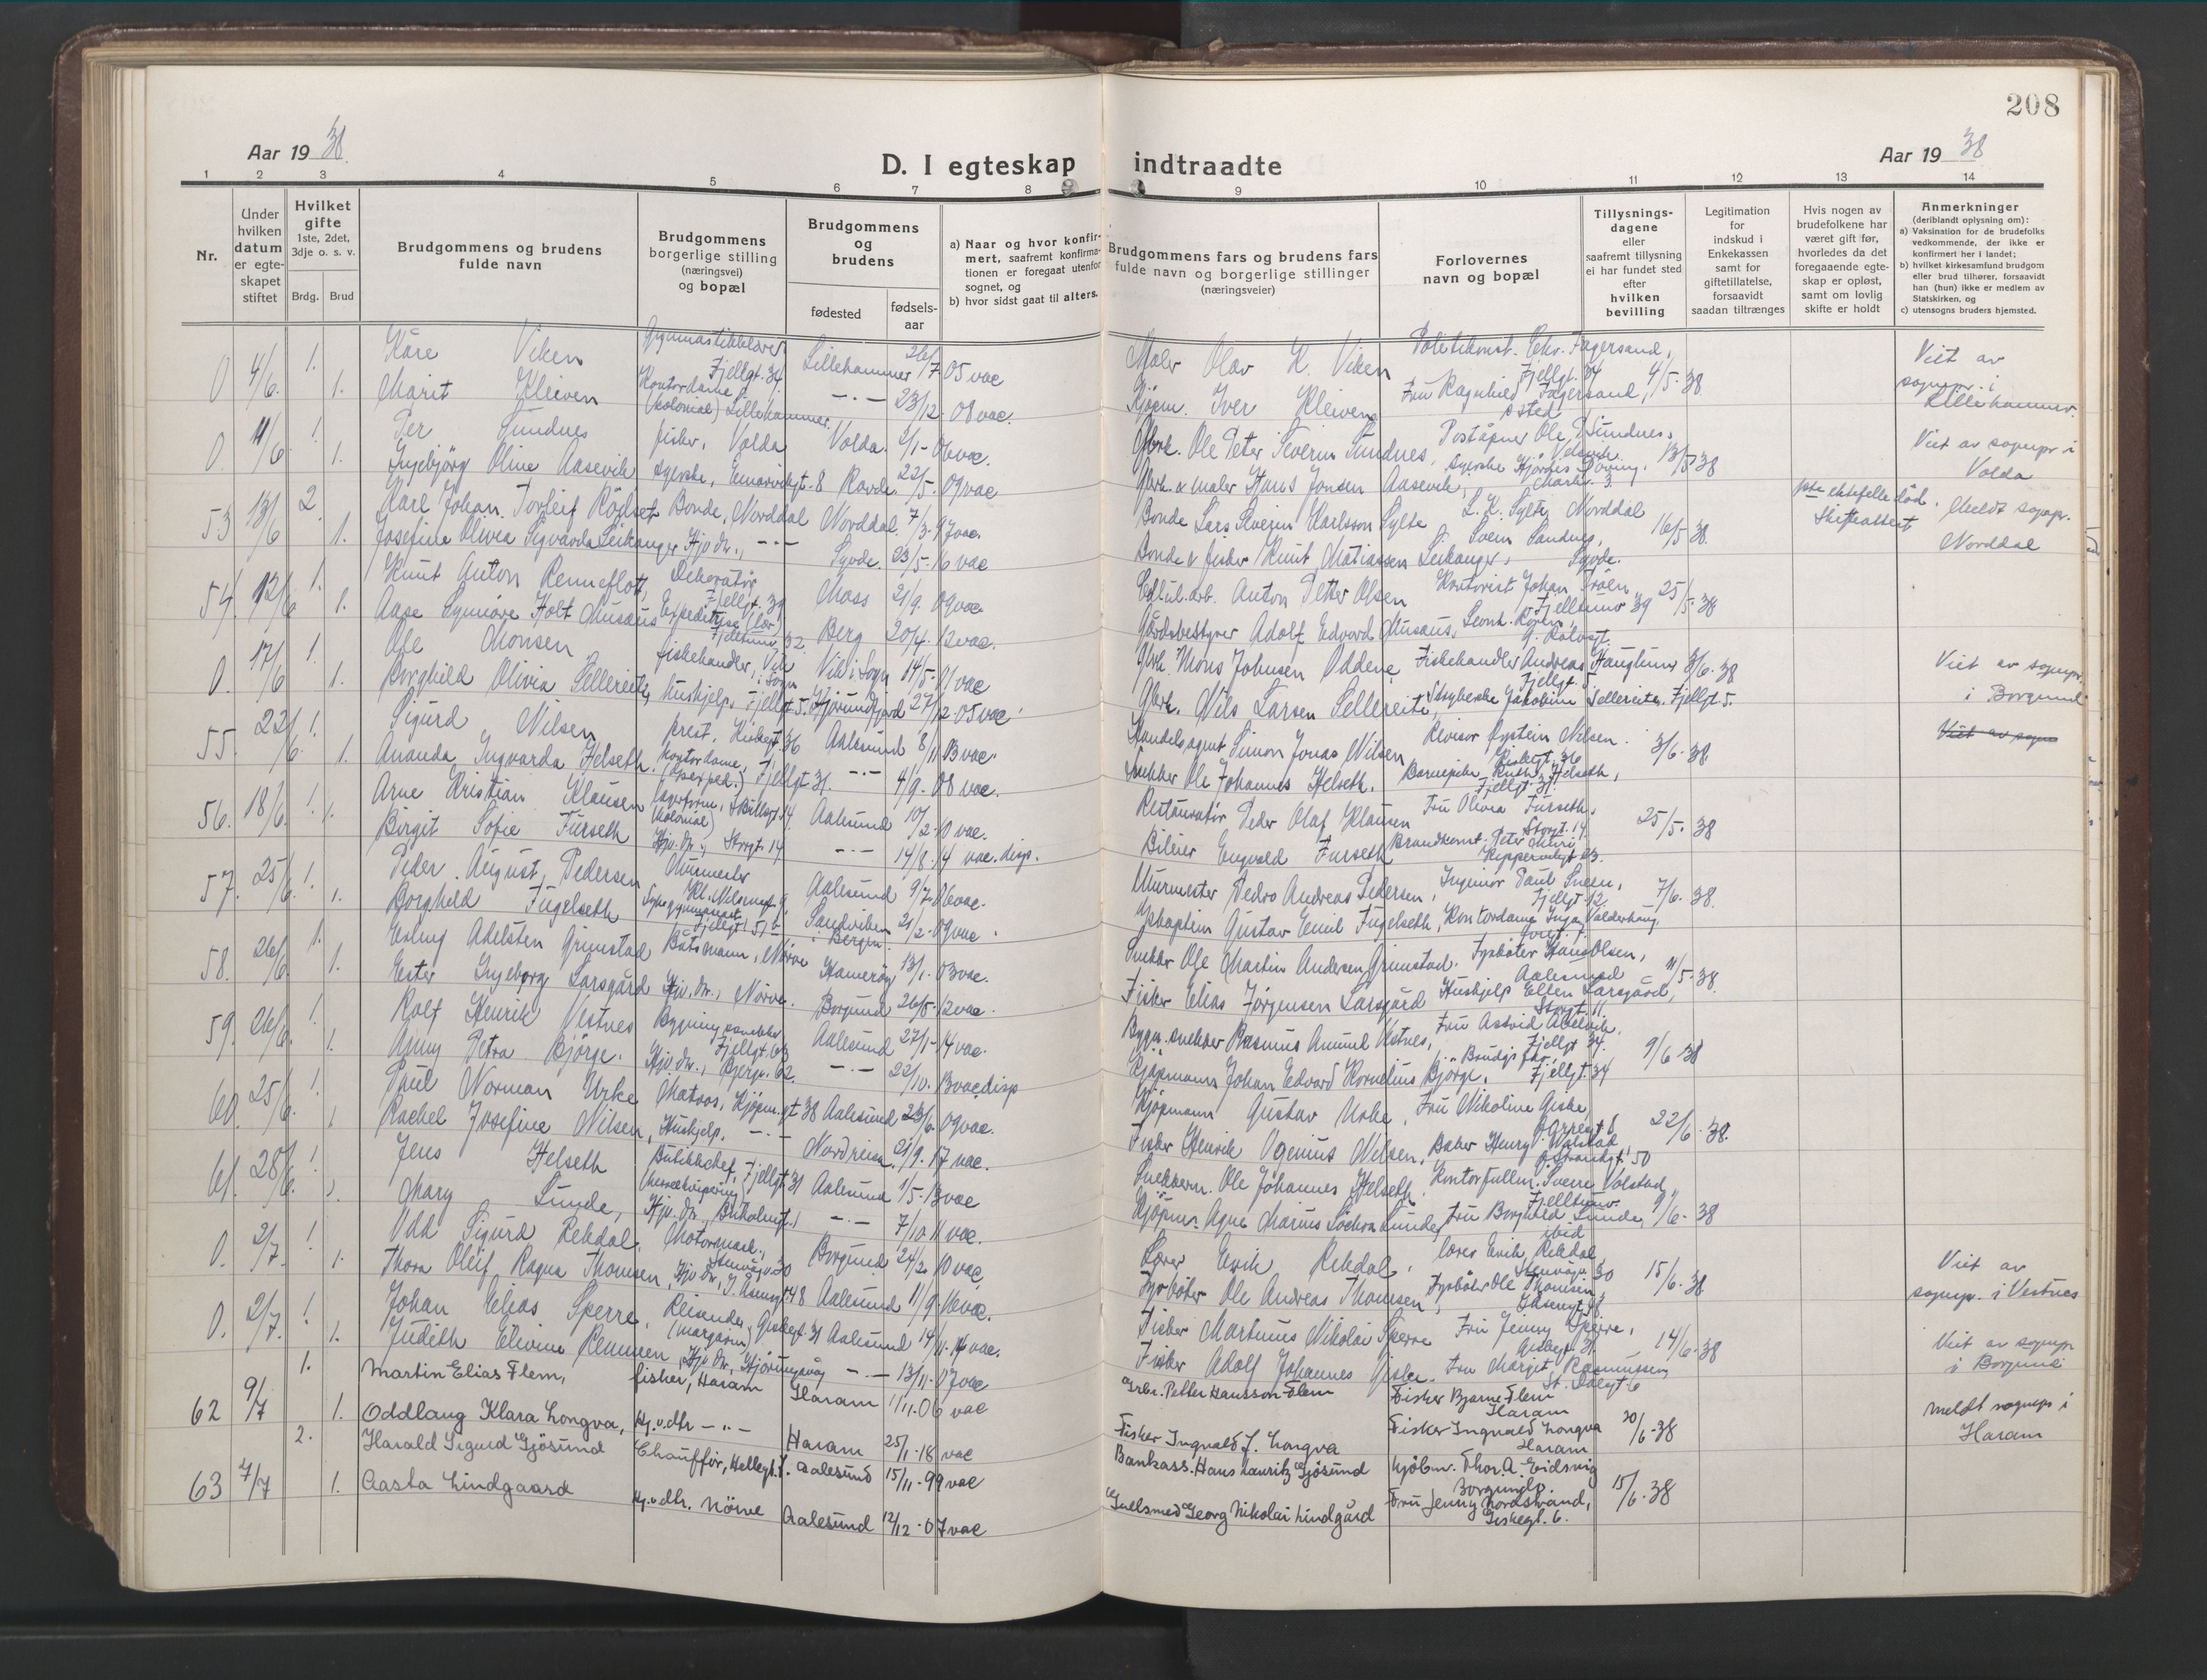 208
Aar 1938
D. I egteskap indtraadte
Aar 1938
1 2 3 4 5 6 7 8 9 10 11 12 13 14
Nr.
Under hvilken datum er egteskapet stiftet
Hvilket gifte 1ste, 2det, 3dje o. s. v.
Brdg. Brud
Brudgommens og brudens fulde navn
Brudgommens borgerlige stilling (næringsvei) og bopæl
Brudgommens og brudens
fødested
fødsels-aar
a) Naar og hvor konfirmert, saafremt konfirmationen er foregaat utenfor sognet, og
b) hvor sidst gaat til alters.
Brudgommens fars og brudens fars fulde navn og borgerlige stillinger (næringsveier)
Forlovernes navn og bopæl
Tillysningsdagene eller saafremt tillysning ei har fundet sted efter hvilken bevilling
Legitimation for indskud i Enkekassen samt for giftetillatelse, forsaavidt saadan tiltrænges
Hvis nogen av brudefolkene har været gift før, hvorledes da det foregaaende egteskap er opløst, samt om lovlig skifte er holdt
Anmerkninger (deriblandt oplysning om):
a) Vaksination for de brudefolks vedkommende, der ikke er konfirmert her i landet;
b) hvilket kirkesamfund brudgom eller brud tilhører, forsaavidt han (hun) ikke er medlem av Statskirken, og
c) utensogns bruders hjemsted.
0 4/6. 1. Kåre Viken Gymnastikklærer Fjellgt. 34. Lillehammer 26/7 05 vac Maler Olav K. Viken Fagersand, Fjellgt. 34 4/5-38 Viet av sognepr. i Lillehammer.
1. Marit Kleiven Kontordame (kolonial) Lillehammer. -"- 23/12. 08 vac. Kjøpm. Iver Kleiven Fru Ragnhild Fagersand,
0. 11/6 1. Per Sundnes fisker, Volda Volda. 2/1-06 vac. Gbrk. Ole Peter Severin Sundnes, Poståpner Ole Sundnes, 13/5 38 Viet av sognepr i Volda
1. Ingebjörg Oline Aasevik syerske, 8 Ravde. 22/5. 09 vac Gbrk. & maler Hans Jonsen Aasevik,
53 13/6 2 Karl Johan Torleif Röyset Bonde, Norddal Norddal. 7/3. 97 vac. Bonde Lars Severin Karlsson Sylte L. K. Sylte Norddal 16/5 38. 1ste ektefelle död. Skifteattest Meldt sognepr. Norddal
1. Josefine Olivia Sigvarda Leikanger Hjv. dtr., -"- Syvde. 23/5-16 vac Bonde & fisker Knut Matiassen Leikanger, Svein Sandnes, Syvde.
54. 12/6 1. Knut Anton Renneflott, Dekoratör Fjellgt. 39 Moss 21/9. 09 vac Anton Petter Olsen Kontorist Johan Fjelltunv 39 25/5-38
1. Aase Synnöve Holt Musæus Berg 20/4. 12 vac. Gårdsbestyrer Adolf Edvard Musæus,
0. 17/6 1. Ole Monsen fiskehandler, Vik i Sogn Vik i Sogn 14/5-01 vac Gbrk. Mons Johnsen Oddene, Fiskehandler Andreas Hauglum Fjellgt. 5 3/6. 38 Viet av sognepr. i Borgund
1. Borghild Olivia Sellereite, Hushjelp, Fjellgt 5. Hjörundfjord 27/12-05 vac Gbrk. Nils Larsen Sellereite, Jakobine Sellereite. Fjellgt 5.
55. 22/6. 1. Sigurd Nilsen prest, Kirkegt. 36 Aalesund 8/11 03 vac. Handelsagent Simon Jonas Nilsen Revisor Öystein Nilsen. 3/6-38. Viet av sogn
1. Ananda Ingvarda Helseth. Kontordame, Fjellgt 31. -"- 4/9. 08 vac. Snekker Ole Johannes Helseth. Barnepike Ruth Helseth, Fjellgt 31.
56. 18/6. 1. Arne Kristian Klausen Lagerform. (Kolonial) Aalesund 10/2-10 vac. Restauratör Peder Olaf Klausen Fru Olivia Furseth, Storgt. 14. 25/5. 38
1. Birgit Sofie Furseth Hjv. dtr., Storgt. 14 -"- 14/8. 14 vac. disp. Bileier Engvald Furseth Brandkonst. Peter
57. 25/6. 1. Peder August Pedersen Murmester Aalesund 9/7. 06 vac. Murmester Pedro Andreas Pedersen, Ingeniör Paul Sneen, Fjellgt. 12. 7/6. 38.
1. Borghild Fugelseth Fjellgt. 51 b Sandviken i Bergen 21/2-09 vac. Skaptein Gustav Emil Fugelseth, Kontordame Inga Valderhaug.
58. 26/6 1. Adelsten Grimstad Båtsmann, Nörve Hamaröy 13/1. 03 vac. Snekker Ole Martin Andersen Grimstad. Fyrböter Hans Olsen, Aalesund 11/5-38.
1. Ester Ingeborg Larsgård Hjv. dtr., Nörve. Borgund 26/5-12 vac. Fisker Elias Jörgensen Larsgård Hushjelp Ellen Larsgård, Storgt. 11.
59. 26/6 1. Rolf Henrik Vestnes Bygningssnekker Fjellgt. 63 Aalesund 27/1-14 vac. Bygn. snekker Rasmus Amund Vestnes, Fru Astrid Fjellgt 34. 9/6 38
1. Anny Petra Björge. Hjv. dtr., 62. -"- 22/10. 13 vac. disp Kjöpmann Johan Edvard Kornelius Björge, Brudgs far, Fjellgt. 34
60. 25/6. 1. Paul Norman Urke Matros, Kjöpm.gt 38 Aalesund 23/6. 09 vac. Kjöpmann Gustav Urke, Fru Nikoline Giske, 22/6. 38.
1. Rachel Josefine Nilsen, Hushjelp. -"- Nordreisa. 21/9. 17 vac. Fisker Henrik Ogenius Nilsen, Baker Henry Valstad 50
61. 28/6. 1. Jens Helseth Butikkchef, Fjellgt 31 Aalesund 1/5-13 vac Snekkerm. Ole Johannes Helseth Kontorfullm. Sverre Volstad, 9/6-38
1. Mary Sunde, Hjv. dtr., -"- 7/10 11 vac. Kjöpm. Marius Sunde, Fru Borghild Sunde, ibid
0. 2/7. 1. Odd Sigurd Rekdal. Motormask., 30 Borgund 24/2. 10 vac. Lærer Eirik Rekdal, lærer Eirik Rekdal, 30 15/6-38 Viet av sognepr. i Vestnes
1. Thora Oleif Ragna Thomsen, Hjv. dtr., 48 Aalesund 11/9. 16 vac. Fyrböter Ole Andreas Thomsen, Fyrböter Ole Thomsen,
0. 2/7. 1. Johan Elias Sperre, Reisende (margarin) Giskegt. 31 Aalesund 14/11. 14 vac. Fisker Martinus Nikolai Sperre Fru Jenny Sperre, Giskegt. 31. 14/6-38 Viet av sognepr i Borgund
1. Judith Elivine Hjv. dtr., -"- 13/11-07 vac Fisker Adolf Johannes Fru Margit Rasmussen,
62 9/7 1. Martin Elias Flem, fisker, Haram Haram 1/11.06 vac Grbr. Petter Hansson Flem Fisker Bjarne Flem Haram 20/6-38 meldt sognepr i Haram
1. Oddlaug Klara Longva, Hj.v. dtr -"- Haram 25/1-18 vac Fisker Ingvald J. Longva Fisker Ingvald Longva Haram
63 7/7 2. Harald Sigurd Gjøsund Chauffør, Hellegt. Aalesund 15/11-99 vac Bankass. Hans Lauritz Gjøsund Kjøbm. Thor A. Eidsvig Borgund 15/6-38
1. Aasta Lindgaard Hj.v. dtr. Nörve Aalesund 12/12-07 vac Gullsmed Georg Nikolai Lindgård Fru Jenny Nordstrand, Giskegt. 6.